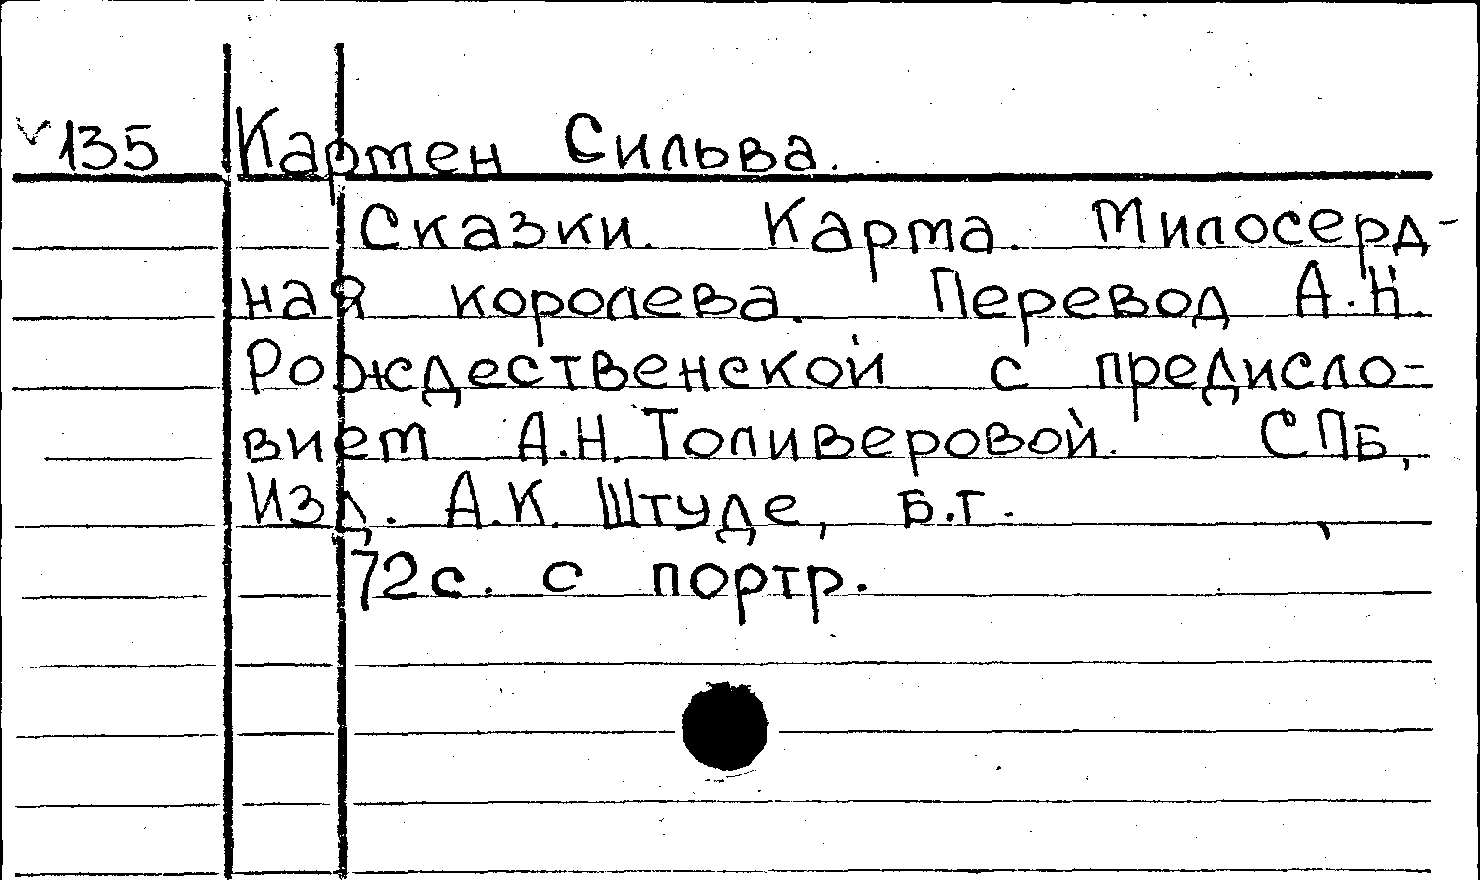 135 Кармен Сильва.
Сказки. Карма. Милосерд-
ная королева. Перевод А.Н.
Рождественской с предисло-
вием А.Н. Толиверовой. СПБ,
Изд. А.К. Штуде, Б.г.
72с. с портр.